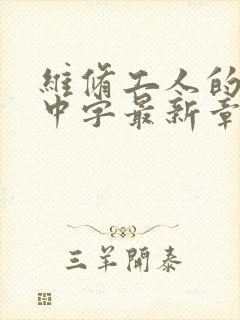 維脩工人的
中字最新章
三羊開泰